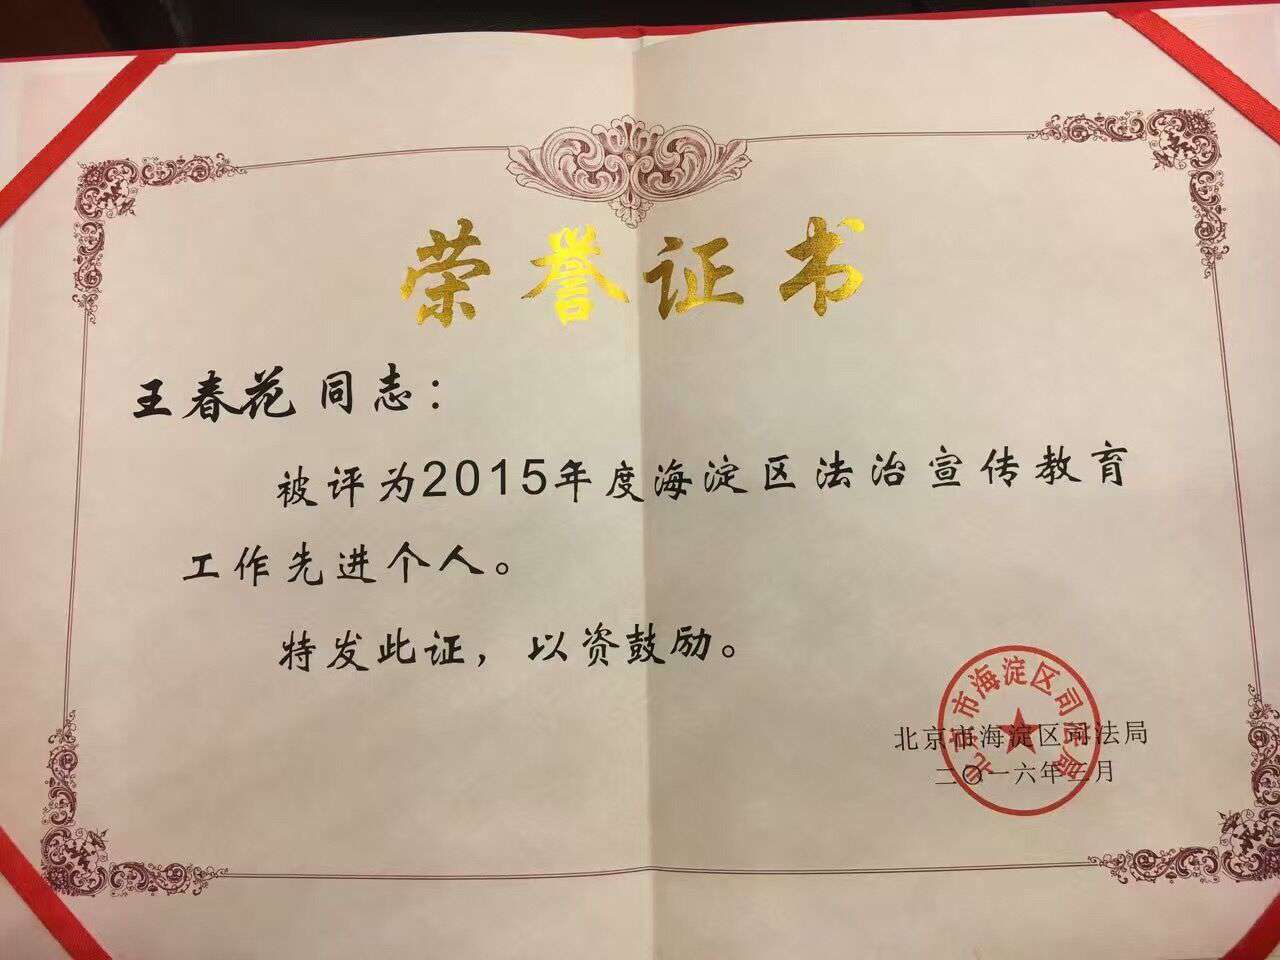 荣誉证书
王春花 同志：
被评为2015年度海淀区法治宣传教育
工作先进个人。
特发此证，以资鼓励。
北京市海淀区司法局
北京市海淀区司法局
二〇一六年三月